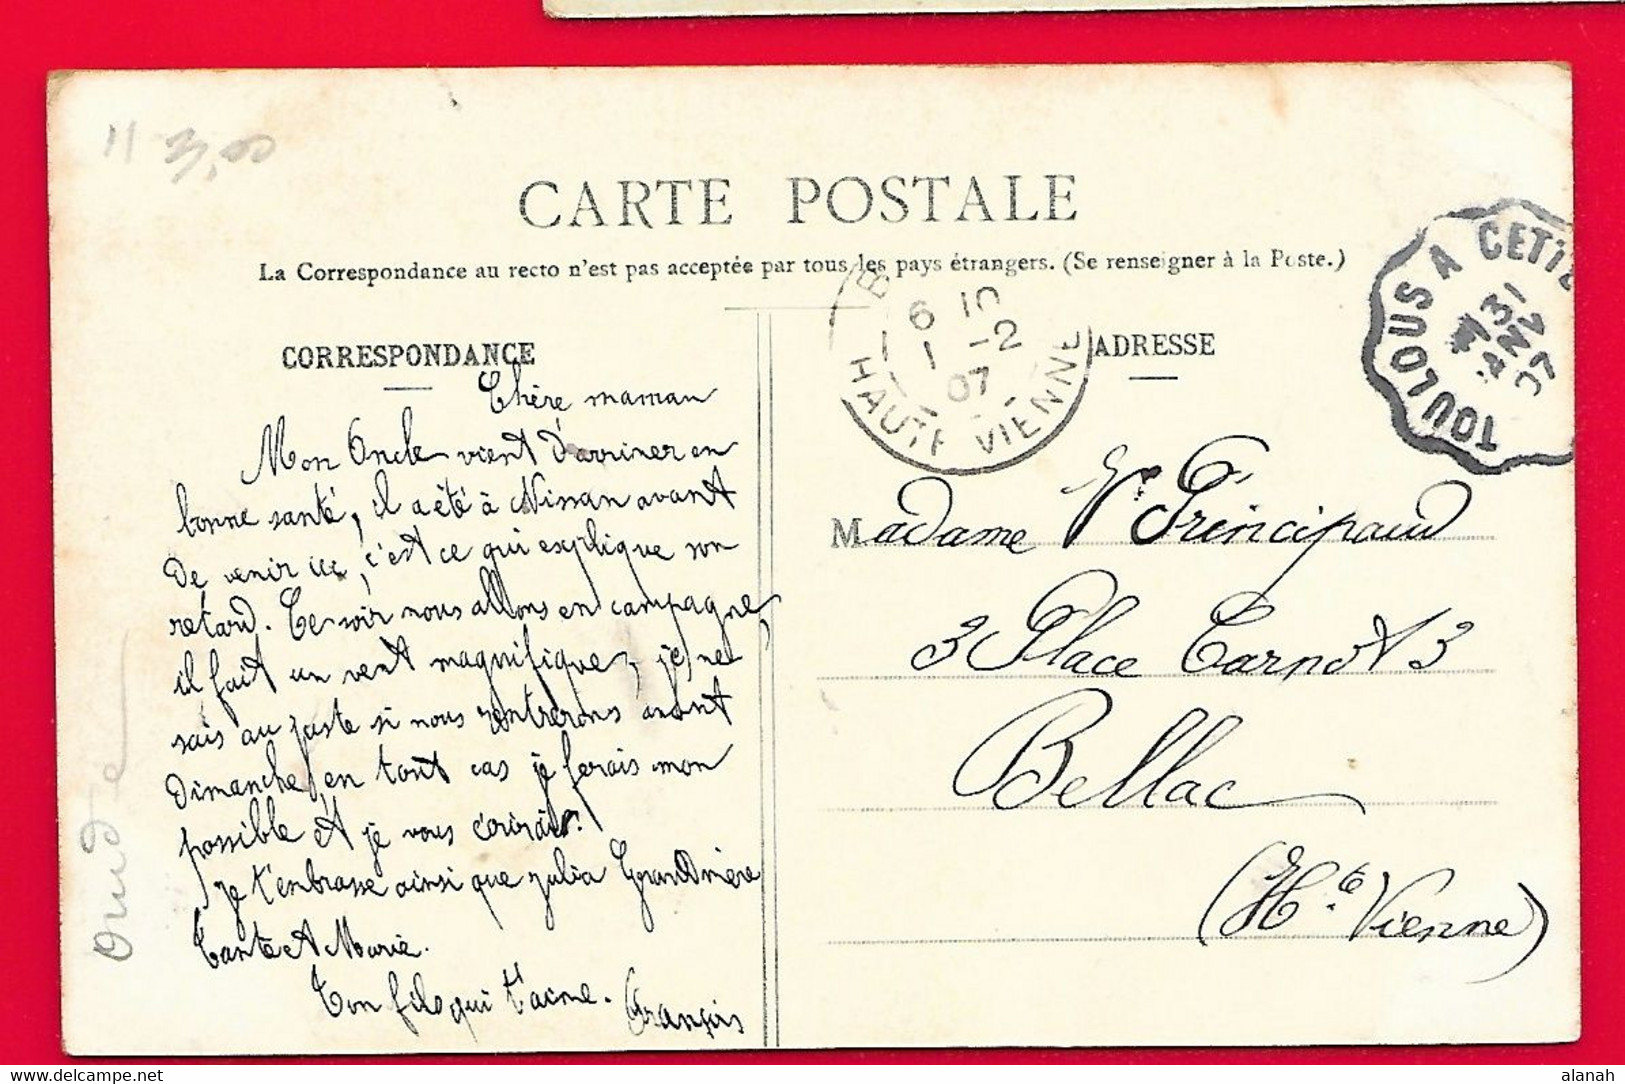 11 3,00
CARTE POSTALE
La Correspondance au recto n'est pas acceptée par tous les pays étrangers. (Se renseigner à la Poste.)
TOULOUSE A CETTE
31
JANV
07
B
6 10
1 -2
07
HAUTE VIENNE
CORRESPONDANCE
ADRESSE
Chère maman
Mon Oncle vient d'arriver en
bonne santé, il a été à Nissan avant
de venir ici, c'est ce qui explique son
retard. Ce soir nous allons en campagne,
il fait un vent magnifique, je ne
sais au juste si nous rentrerons avant
Dimanche, en tout cas je ferais mon
possible et je vous écrirais.
Je t'embrasse ainsi que Julia Grandmère
Tante et Marie.
Ton fils qui t'aime. François
Madame Vve Principaud
3 Place Carnot 3
Bellac
(Hte Vienne)
Aude
delcampe.net
alanah